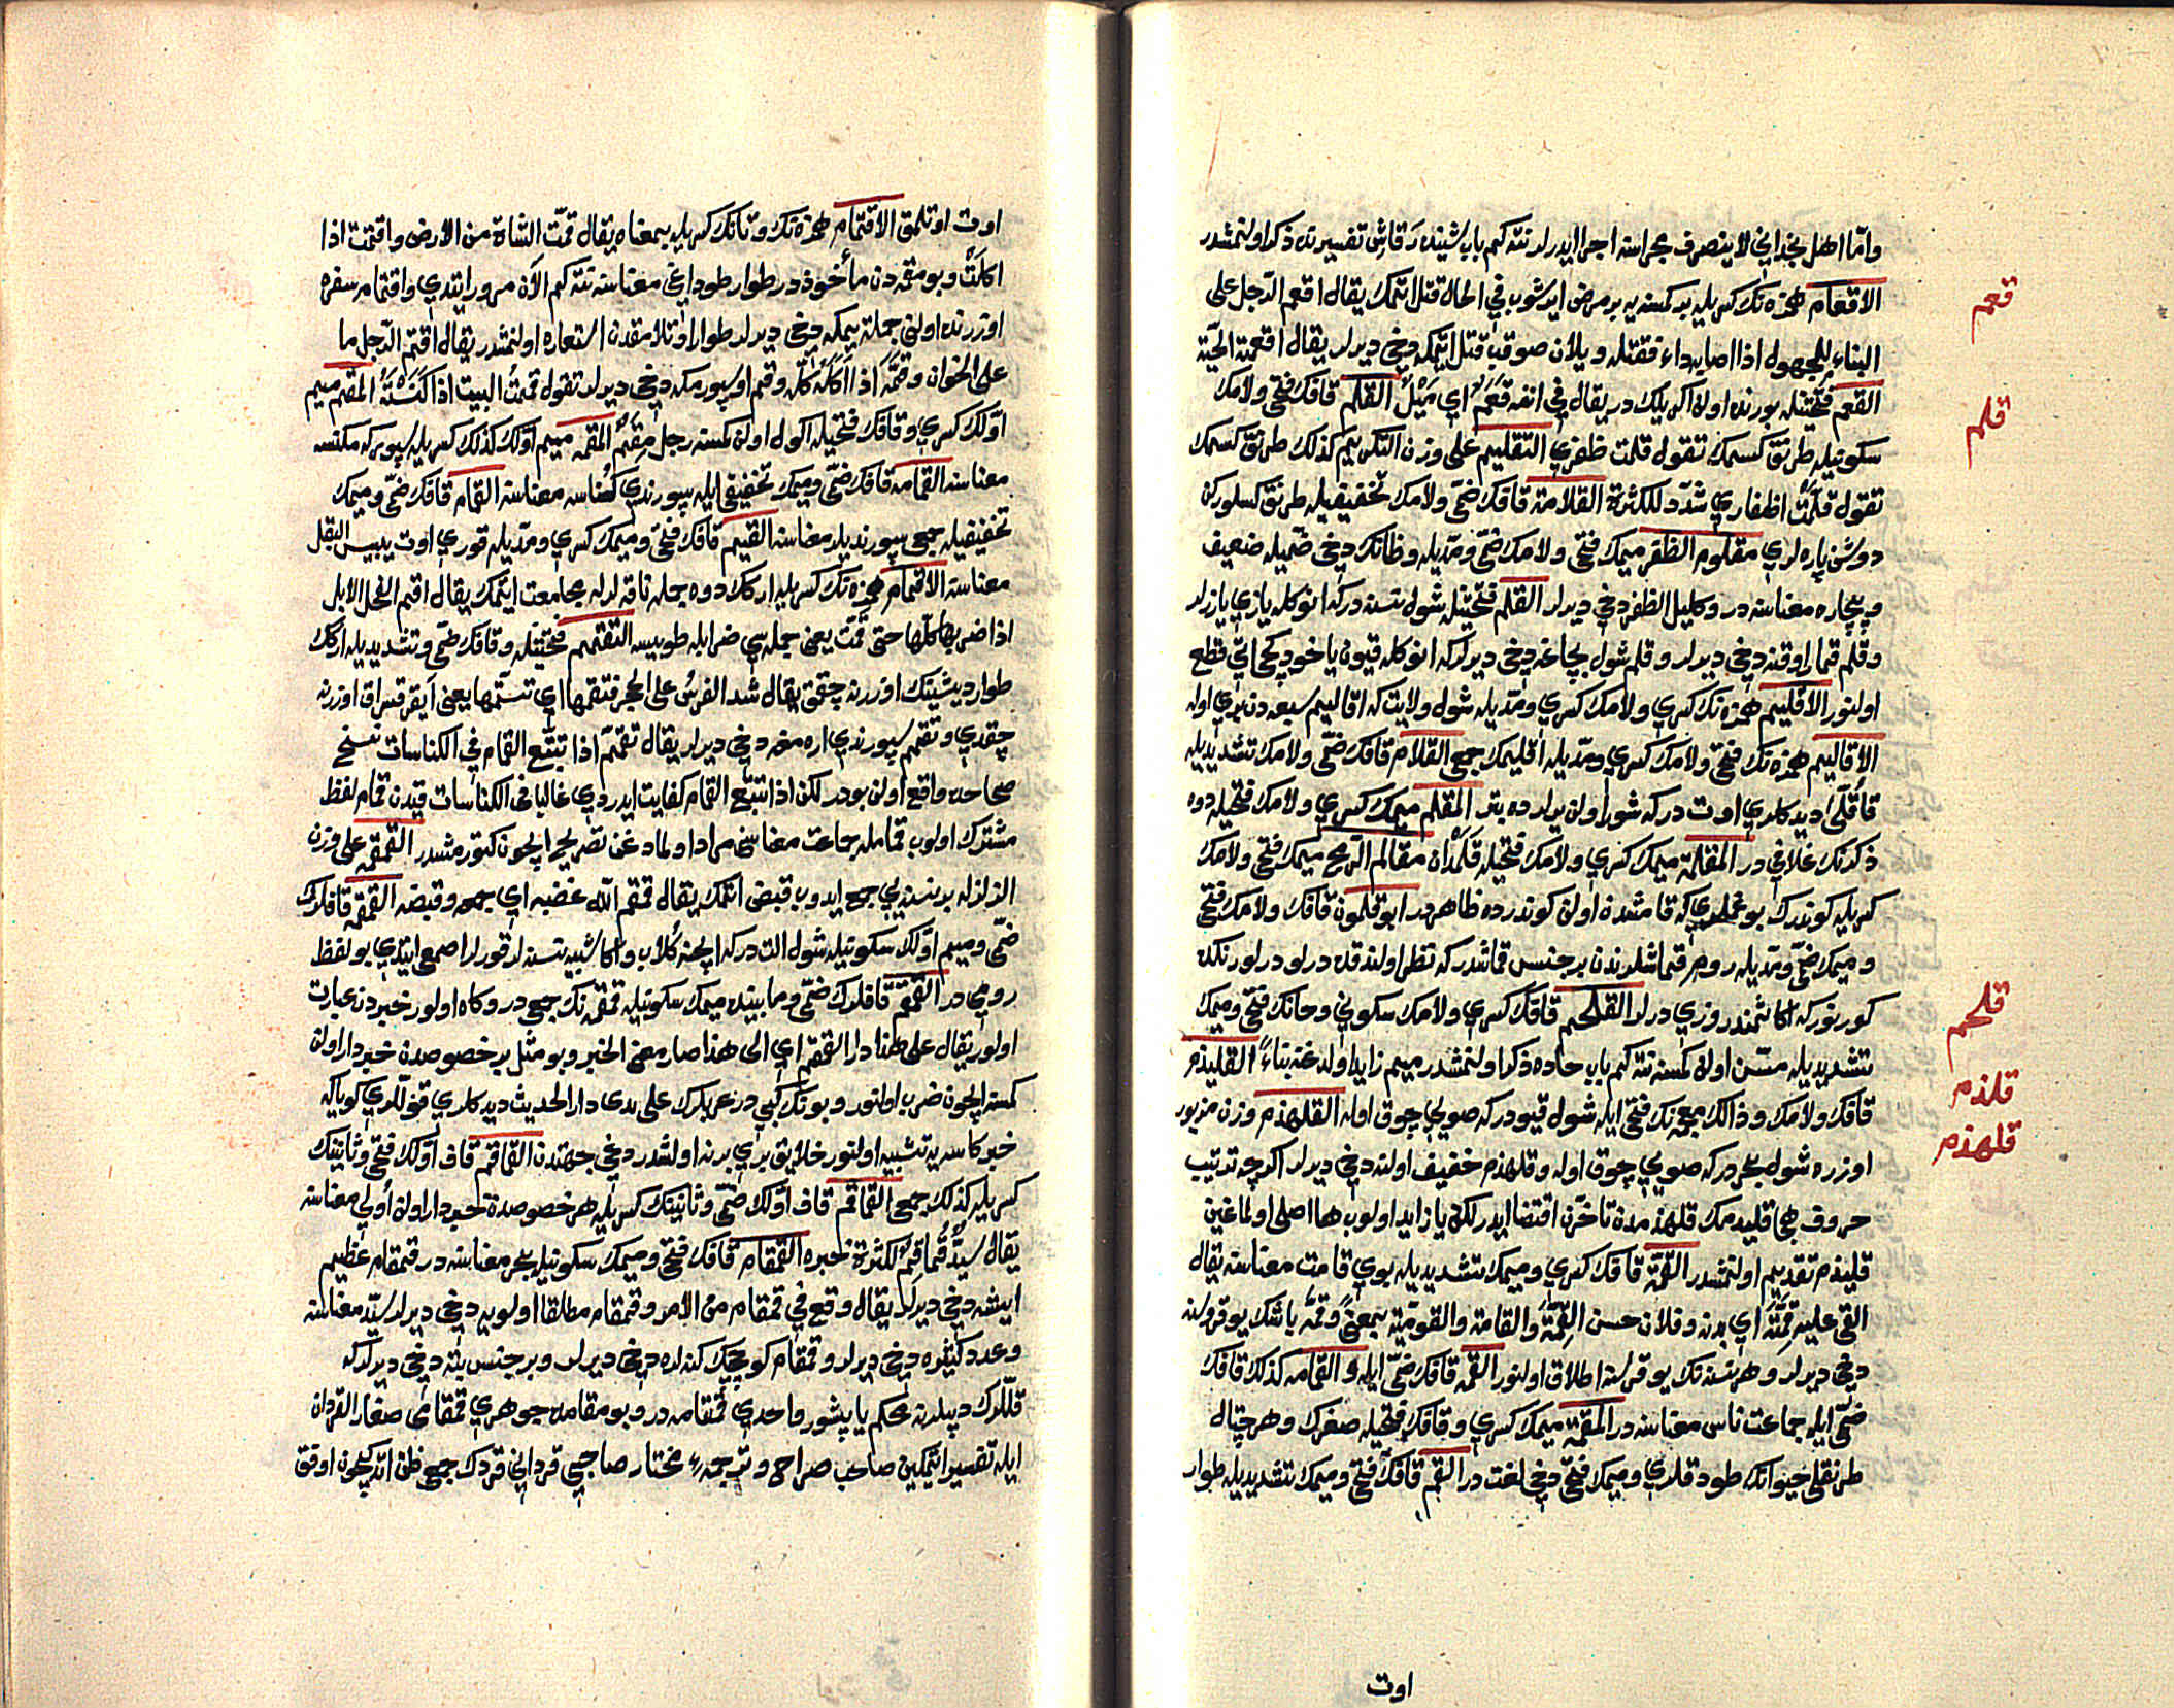 واما اهل نجد انی لا ینصرف مجراسنه اجرا ایدرلر نته کم باب شینده رقاش تفسیرنده ذکر اولنمشدر
الاقعام همزه نك کسریله بر کمسنه یه بر مرض ایرشوب فی الحال قتل اتمك یقال اقعم الرجل علی
البناء للمجهول اذا اصابه داء فقتله و یلان صوقب قتل ایتمکه دخی دیرلر یقال اقعمته الحیة
القعم فتحتینله بورنده اولن اکریلك در یقال فی انفه قعم ای میل القلم قافك فتحی ولامك
سکونیله طرنق کسمك تقول قلمت ظفری التقلیم علی وزن التکریم کذلك طرنق کسمك
تقول قلمت اظفاری شدد للکثرة القلامة قافك ضمی ولامك تخفیفیله طرنق کسلورکن
دوشن پاره لری مقلوم الظفر میمك فتحی ولامك ضمی ومدیله وظانك دخی ضمیله ضعیف
وبیچاره معناسنه در وکلیل الظفر دخی دیرلر القلم فتحتینله شول نسنه درکه انوکله یازی یازرلر
وقلم قمار اوقنه دخی دیرلر وقلم شول بچاغه دخی دیرلرکه انوکله قیون یاخود کچی اتی قطع
اولنور الاقلیم همزه نك کسری ولامك کسری ومدیله شول ولایت که اقالیم سبعه دن بری اوله
الاقالیم همزه نك فتحی ولامك کسری ومدیله اقلیمك جمعی القلام قافك ضمی ولامك تشدیدیله
قاقلی دیدکلری اوت درکه شور اولن یرلرده بتر المقلم میمك کسری ولامك فتحیله دوه
ذکرنك غلافی در المقلمة میمك کسری ولامك فتحیله قلمدان مقالم الرمح میمك فتحی ولامك
کسریله کوندرك بوغملری که قامشدن اولن کوندرده ظاهر در ابوقلمون قافك ولامك فتحی
ومیمك ضمی ومدیله روم قماشلرندن بر جنس قماشدرکه نظر اولندقده درلو درلو رنکده
کورنورکه اکا شمندر وزی درلر القلحم قافك کسری ولامك سکونی وحانك فتحی ومیمك
تشدیدیله مسن اولن کمسنه نته کم باب حاده ذکر اولنمشدر میم زاید اولدغنه بناء القلیذم
قافك ولامك وذالك معجمه نك فتحی ایله شول قیودرکه صویی چوق اوله القلهذم وزن مزبور
اوزره شول بحر درکه صویی چوق اوله وقلهذم خفیف اولنه دخی دیرلر اکرچه ترتیب
حروف هجا قلیدمك قلهذمدن تأخرن اقتضا ایدر لکن یا زاید اولوب ها اصلی اولماغین
قلیذم تقدیم اولنمشدر القمة قافك کسری ومیمك تشدیدیله بوی قامت معناسنه یقال
القی علیه قمته ای بدنه وفلان حسن القمة والقامة والقومیة بمعنی وقمه باشك یوقروسنه
دخی دیرلر وهر نسنه نك یوقروسنه اطلاق اولنور القمه قافك ضمی ایله والقمامه کذلك قافك
ضمی ایله جماعت ناس معناسنه در المقمة میمك کسری وقافك فتحیله صغرك وهر چتال
طرنقلی حیوانك طود قلری ومیمك فتحی دخی لغت در القم قافك فتحی ومیمك تشدیدیله طوار
اوت
قعم
قلم
قلحم
قلذم
قلهذم
اوت اوتلمق الاقتمام همزه نك وتانك کسریله بمعناه یقال قمت الشاة من الارض واقتمت اذا
اکلت وبو مقمه دن مأخوذ در طوار طوداغی معناسنه نته کم الآن مرور ایتدی واقتمام سفره
اوزرنده اولنی جملة یمکه دخی دیرلر طوار اوتلامقدن استعاره اولنمشدر یقال اقتم الرجل ما
علی الخوان وقمه اذا اکله کله وقم او سپورمکه دخی دیرلر تقول قممت البیت اذا کنسته المقم میم
اولك کسری وقافك فتحیله اکول اولن کمسنه رجل مقم المقمه میم اولك کذلك کسریله سپورکه مکنسه
معناسنه القمامه قافك ضمی ومیمك تخفیفی ایله سپورندی کناسه معناسنه القمام قافك ضمی ومیمك
تخفیفیله جمعی سپورندیلر معناسنه القمیم قافك فتحی ومیمك کسری ومدیله قوری اوت یبیس البقل
معناسنه الاقمام همزه نك کسریله ارکك دوه جمله ناقه لرله مجامعت ایتمك یقال اقم الفحل الابل
اذا ضربها کلها حتی قمت یعنی جمله سی ضرابله طوبیسه التقمم فتحتینله وقافك ضمی وتشدیدیله ارکك
طوار دیشینك اوزرنه چقمق یقال شد الفرس علی الحجر فتقمها ای تسنمها یعنی ایقر قسراق اوزرنه
چقدی وتقم سپورندی ارهمغه دخی دیرلر یقال تقمم اذا تتبع القمام فی الکناسات نسخ
صحاحده واقع اولن بودر لکن اذا تتبع القمام کفایت ایدردی غالبا فی الکناسات قیدن قمام لفظ
مشترك اولوب قمامله جماعت معناسی مراد اولمادغن تصریح ایچون کتورمشدر القمقمه علی وزن
الزلزله بر نسنه یی جمع ایدوب قبض اتمك یقال قمقم الله عصبه ای جمعه وقبضه القمقمه قافلرك
ضمی ومیم اولك سکونیله شول التدرکه ایچنه کلاب واکا شبیه نسنه لر قورلر اصمعی ایتدی بو لفظ
رومی در القمقم قافلرك ضمی ومابینده میمك سکونیله قمقمه نك جمعی در وکاه اولور خبردن عبارت
اولور یقال علی هذا دار القمقم ای الی هذا صار معنی الخبر وبو مثل بر خصوصدن خبردار اولن
کمسنه ایچون ضرب اولنور وبو ترك کبی در عربلرك علی یدی دار الحدیث دیدکلری قوللری کویاکه
خبر کاسه یه تشبیه اولنور خلایق بری برنه اولشدر دخی جهتدن القماقم قاف اولك فتحی وثانینك
کسریله کذلك جمع القماقم قاف اولك ضمی وثانینك کسریله هر خصوصدن خبردار اولن اولی معناسنه
یقال سید قماقم لکثرة خبره القمقام قافك فتحی ومیمك سکونیله بحر معناسنه در قمقام عظیم
ایشه دخی دیرلر یقال وقع فی قمقام من الامر وقمقام مطلقا اولویه دخی دیرلر سید معناسنه
وعدد کثیره دخی دیرلر وقمقام کوچیك کنه لره دخی دیرلر وبر جنس بته دخی دیرلرکه
قللرك دپلرنه محکم یاپشور واحدی قمقامه در وبو مقامده جوهری قمقامی صغار القردان
ایله تفسیر ایتمکین صاحب صراح وترجمه مختار صاحبی قردانی قردك جمعی ظن اتدکچون اوقق